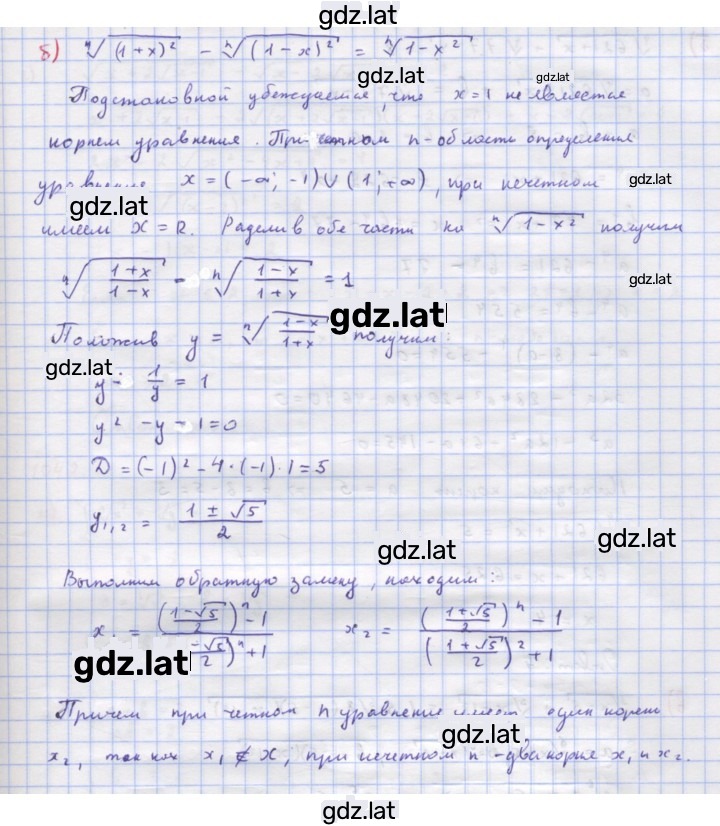 gdz.lat
б) ⁿ√(1+x)² - ⁿ√(1-x)² = ⁿ√1-x²
gdz.lat gdz.lat
Подстановкой убеждаемся, что x=1 не является
корнем уравнения. При четном n-область определения
x = (-∞; -1)∪(1;+∞), при нечетном gdz.lat
gdz.lat
имеем X = R. Разделив обе части на ⁿ√1-x² получим
ⁿ√(1+x)/(1-x) - ⁿ√(1-x)/(1+x) = 1
gdz.lat
Положив y = ⁿ√(1-x)/(1+x) получим:
gdz.lat
y - 1/y = 1
y² - y - 1 = 0
D = (-1)² - 4·(-1)·1 = 5
y₁,₂ = (1 ± √5)/2
gdz.lat gdz.lat
Выполним обратную замену, находим:
x₁ = (((1-√5)/2)ⁿ - 1)/((-√5/2)ⁿ + 1) x₂ = (((1+√5)/2)ⁿ - 1)/(((1+√5)/2)² + 1)
gdz.lat
Причем при четном n уравнение имеет один корень
gdz.lat
x₂, так как x₁ ∉ X, при нечетном n - два корня x₁ и x₂.
gdz.lat